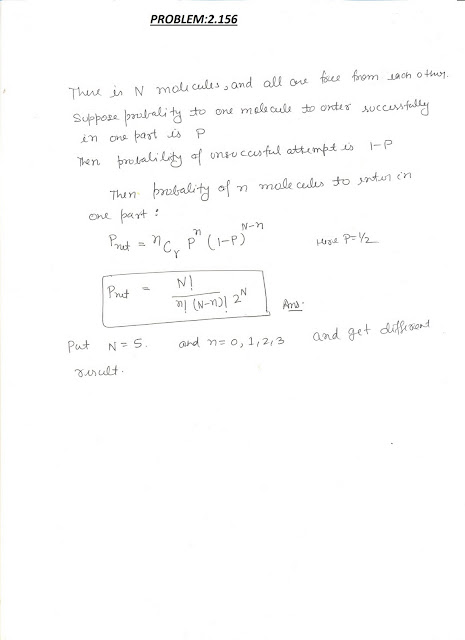 PROBLEM:2.156
There is N molecules, and all are free from each other.
Suppose probality to one molecule to enter successfully
in one part is P
Then probability of unsuccessful attempt is 1-P
Then probality of n molecules to enter in
one part :
P_net = ⁿC_r Pⁿ (1-P)^{N-n} Here P=1/2
P_net = N! / n! (N-n)! 2^N Ans.
Put N = 5. and n = 0, 1, 2, 3 and get different
result.